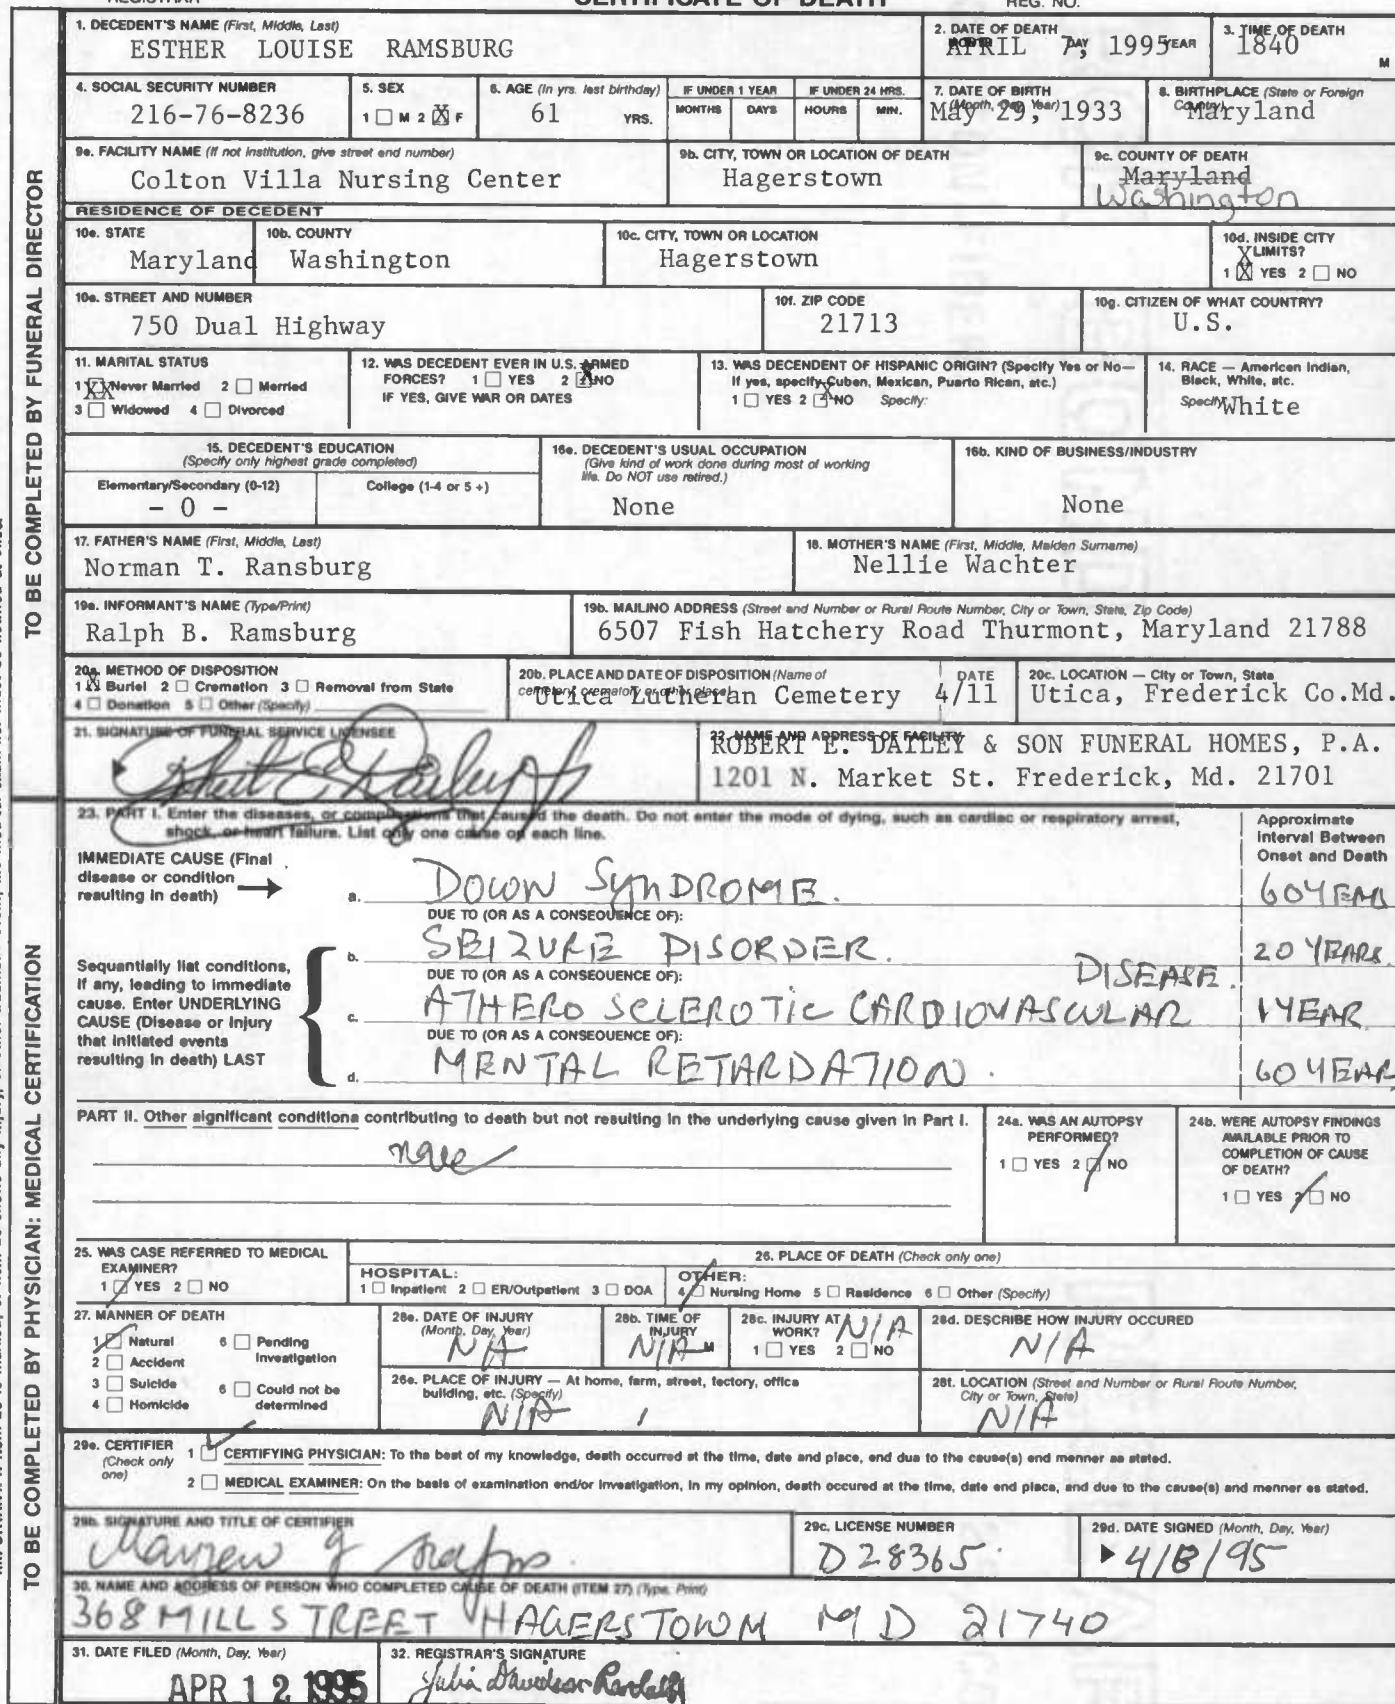 REGISTRAR CERTIFICATE OF DEATH REG. NO.
TO BE COMPLETED BY FUNERAL DIRECTOR
1. DECEDENT'S NAME (First, Middle, Last)
ESTHER LOUISE RAMSBURG
2. DATE OF DEATH
APRIL 7, 1995
DAY YEAR
3. TIME OF DEATH
1840
M
4. SOCIAL SECURITY NUMBER
216-76-8236
5. SEX
1 M 2 X F
6. AGE (In yrs. last birthday)
61 YRS.
IF UNDER 1 YEAR
MONTHS DAYS
IF UNDER 24 HRS.
HOURS MIN.
7. DATE OF BIRTH
(Month, Day, Year)
May 29, 1933
8. BIRTHPLACE (State or Foreign
Country)
Maryland
9a. FACILITY NAME (If not institution, give street and number)
Colton Villa Nursing Center
9b. CITY, TOWN OR LOCATION OF DEATH
Hagerstown
9c. COUNTY OF DEATH
Maryland
Washington
RESIDENCE OF DECEDENT
10a. STATE
Maryland
10b. COUNTY
Washington
10c. CITY, TOWN OR LOCATION
Hagerstown
10d. INSIDE CITY
X LIMITS?
1 X YES 2 NO
10e. STREET AND NUMBER
750 Dual Highway
10f. ZIP CODE
21713
10g. CITIZEN OF WHAT COUNTRY?
U.S.
11. MARITAL STATUS
1 XX Never Married 2 Married
3 Widowed 4 Divorced
12. WAS DECEDENT EVER IN U.S. ARMED
FORCES? 1 YES 2 X NO
IF YES, GIVE WAR OR DATES
13. WAS DECENDENT OF HISPANIC ORIGIN? (Specify Yes or No—
If yes, specify Cuban, Mexican, Puerto Rican, etc.)
1 YES 2 X NO Specify:
14. RACE — American Indian,
Black, White, etc.
Specify White
15. DECEDENT'S EDUCATION
(Specify only highest grade completed)
Elementary/Secondary (0-12) College (1-4 or 5 +)
- 0 -
16a. DECEDENT'S USUAL OCCUPATION
(Give kind of work done during most of working
life. Do NOT use retired.)
None
16b. KIND OF BUSINESS/INDUSTRY
None
17. FATHER'S NAME (First, Middle, Last)
Norman T. Ransburg
18. MOTHER'S NAME (First, Middle, Maiden Surname)
Nellie Wachter
19a. INFORMANT'S NAME (Type/Print)
Ralph B. Ramsburg
19b. MAILING ADDRESS (Street and Number or Rural Route Number, City or Town, State, Zip Code)
6507 Fish Hatchery Road Thurmont, Maryland 21788
20a. METHOD OF DISPOSITION
1 X Burial 2 Cremation 3 Removal from State
4 Donation 5 Other (Specify)
20b. PLACE AND DATE OF DISPOSITION (Name of
cemetery, crematory or other place)
Utica Lutheran Cemetery
DATE
4/11
20c. LOCATION — City or Town, State
Utica, Frederick Co.Md.
21. SIGNATURE OF FUNERAL SERVICE LICENSEE
22. NAME AND ADDRESS OF FACILITY
ROBERT E. DAILEY & SON FUNERAL HOMES, P.A.
1201 N. Market St. Frederick, Md. 21701
TO BE COMPLETED BY PHYSICIAN: MEDICAL CERTIFICATION
23. PART I. Enter the diseases, or complications that caused the death. Do not enter the mode of dying, such as cardiac or respiratory arrest,
shock, or heart failure. List only one cause on each line.
Approximate
Interval Between
Onset and Death
IMMEDIATE CAUSE (Final
disease or condition
resulting in death)
a. DOWN SYNDROME. 60 YEARS
DUE TO (OR AS A CONSEQUENCE OF):
b. SEIZURE DISORDER. 20 YEARS.
Sequentially list conditions,
if any, leading to immediate
cause. Enter UNDERLYING
CAUSE (Disease or injury
that initiated events
resulting in death) LAST
DUE TO (OR AS A CONSEQUENCE OF):
DISEASE.
c. ATHERO SCLEROTIC CARDIOVASCULAR 1 YEAR
DUE TO (OR AS A CONSEQUENCE OF):
d. MENTAL RETARDATION. 60 YEAR
PART II. Other significant conditions contributing to death but not resulting in the underlying cause given in Part I.
none
24a. WAS AN AUTOPSY
PERFORMED?
1 YES 2 NO
24b. WERE AUTOPSY FINDINGS
AVAILABLE PRIOR TO
COMPLETION OF CAUSE
OF DEATH?
1 YES 2 NO
25. WAS CASE REFERRED TO MEDICAL
EXAMINER?
1 YES 2 NO
26. PLACE OF DEATH (Check only one)
HOSPITAL:
1 Inpatient 2 ER/Outpatient 3 DOA
OTHER:
4 Nursing Home 5 Residence 6 Other (Specify)
27. MANNER OF DEATH
1 Natural 5 Pending
Investigation
2 Accident
3 Suicide 6 Could not be
determined
4 Homicide
28a. DATE OF INJURY
(Month, Day, Year)
N/A
28b. TIME OF
INJURY
N/A M
28c. INJURY AT
WORK? N/A
1 YES 2 NO
28d. DESCRIBE HOW INJURY OCCURED
N/A
28e. PLACE OF INJURY — At home, farm, street, factory, office
building, etc. (Specify)
N/A
28f. LOCATION (Street and Number or Rural Route Number,
City or Town, State)
N/A
29a. CERTIFIER
(Check only
one)
1 CERTIFYING PHYSICIAN: To the best of my knowledge, death occurred at the time, date and place, and due to the cause(s) and manner as stated.
2 MEDICAL EXAMINER: On the basis of examination and/or investigation, in my opinion, death occured at the time, date and place, and due to the cause(s) and manner as stated.
29b. SIGNATURE AND TITLE OF CERTIFIER
29c. LICENSE NUMBER
D28365
29d. DATE SIGNED (Month, Day, Year)
4/8/95
30. NAME AND ADDRESS OF PERSON WHO COMPLETED CAUSE OF DEATH (ITEM 27) (Type, Print)
368 MILL STREET HAGERSTOWN MD 21740
31. DATE FILED (Month, Day, Year)
APR 12 1995
32. REGISTRAR'S SIGNATURE
Julia Davidson-Randall